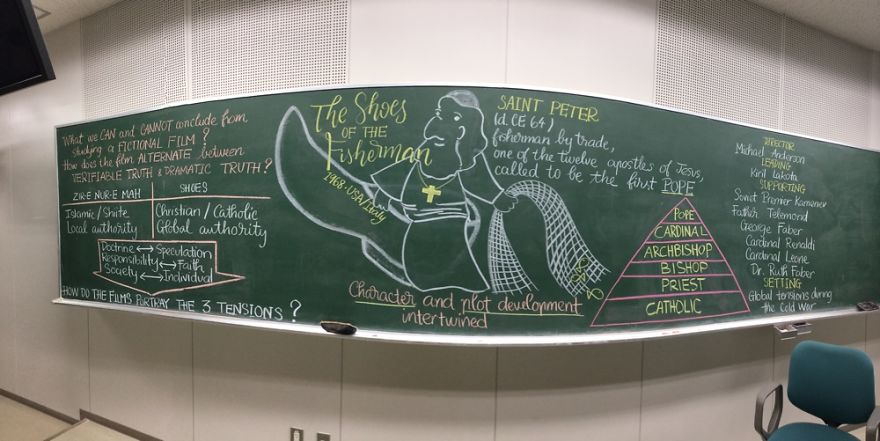 What we CAN and CANNOT conclude from
studying a FICTIONAL FILM?
How does the film ALTERNATE between
VERIFIABLE TRUTH & DRAMATIC TRUTH?
ZIR-E NUR-E MAH
Islamic/Shiite
Local authority
SHOES
Christian/Catholic
Global authority
Doctrine ↔ Speculation
Responsibility ↔ Faith
Society ↔ Individual
HOW DO THE FILMS PORTRAY THE 3 TENSIONS?
The Shoes
OF THE
Fisherman
1968·USA/Italy
Character and plot development
intertwined
SAINT PETER
(d. CE 64)
fisherman by trade,
one of the twelve apostles of Jesus,
called to be the first POPE
POPE
CARDINAL
ARCHBISHOP
BISHOP
PRIEST
CATHOLIC
DIRECTOR
Michael Anderson
LEADING
Kiril Lakota
SUPPORTING
Soviet Premier Kamenev
Father Telemond
George Faber
Cardinal Renaldi
Cardinal Leone
Dr. Ruth Faber
SETTING
Global tensions during
the Cold War